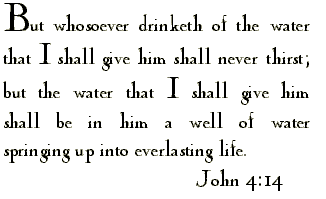 But whosoever drinketh of the water
that I shall give him shall never thirst;
but the water that I shall give him
shall be in him a well of water
springing up into everlasting life.
John 4:14